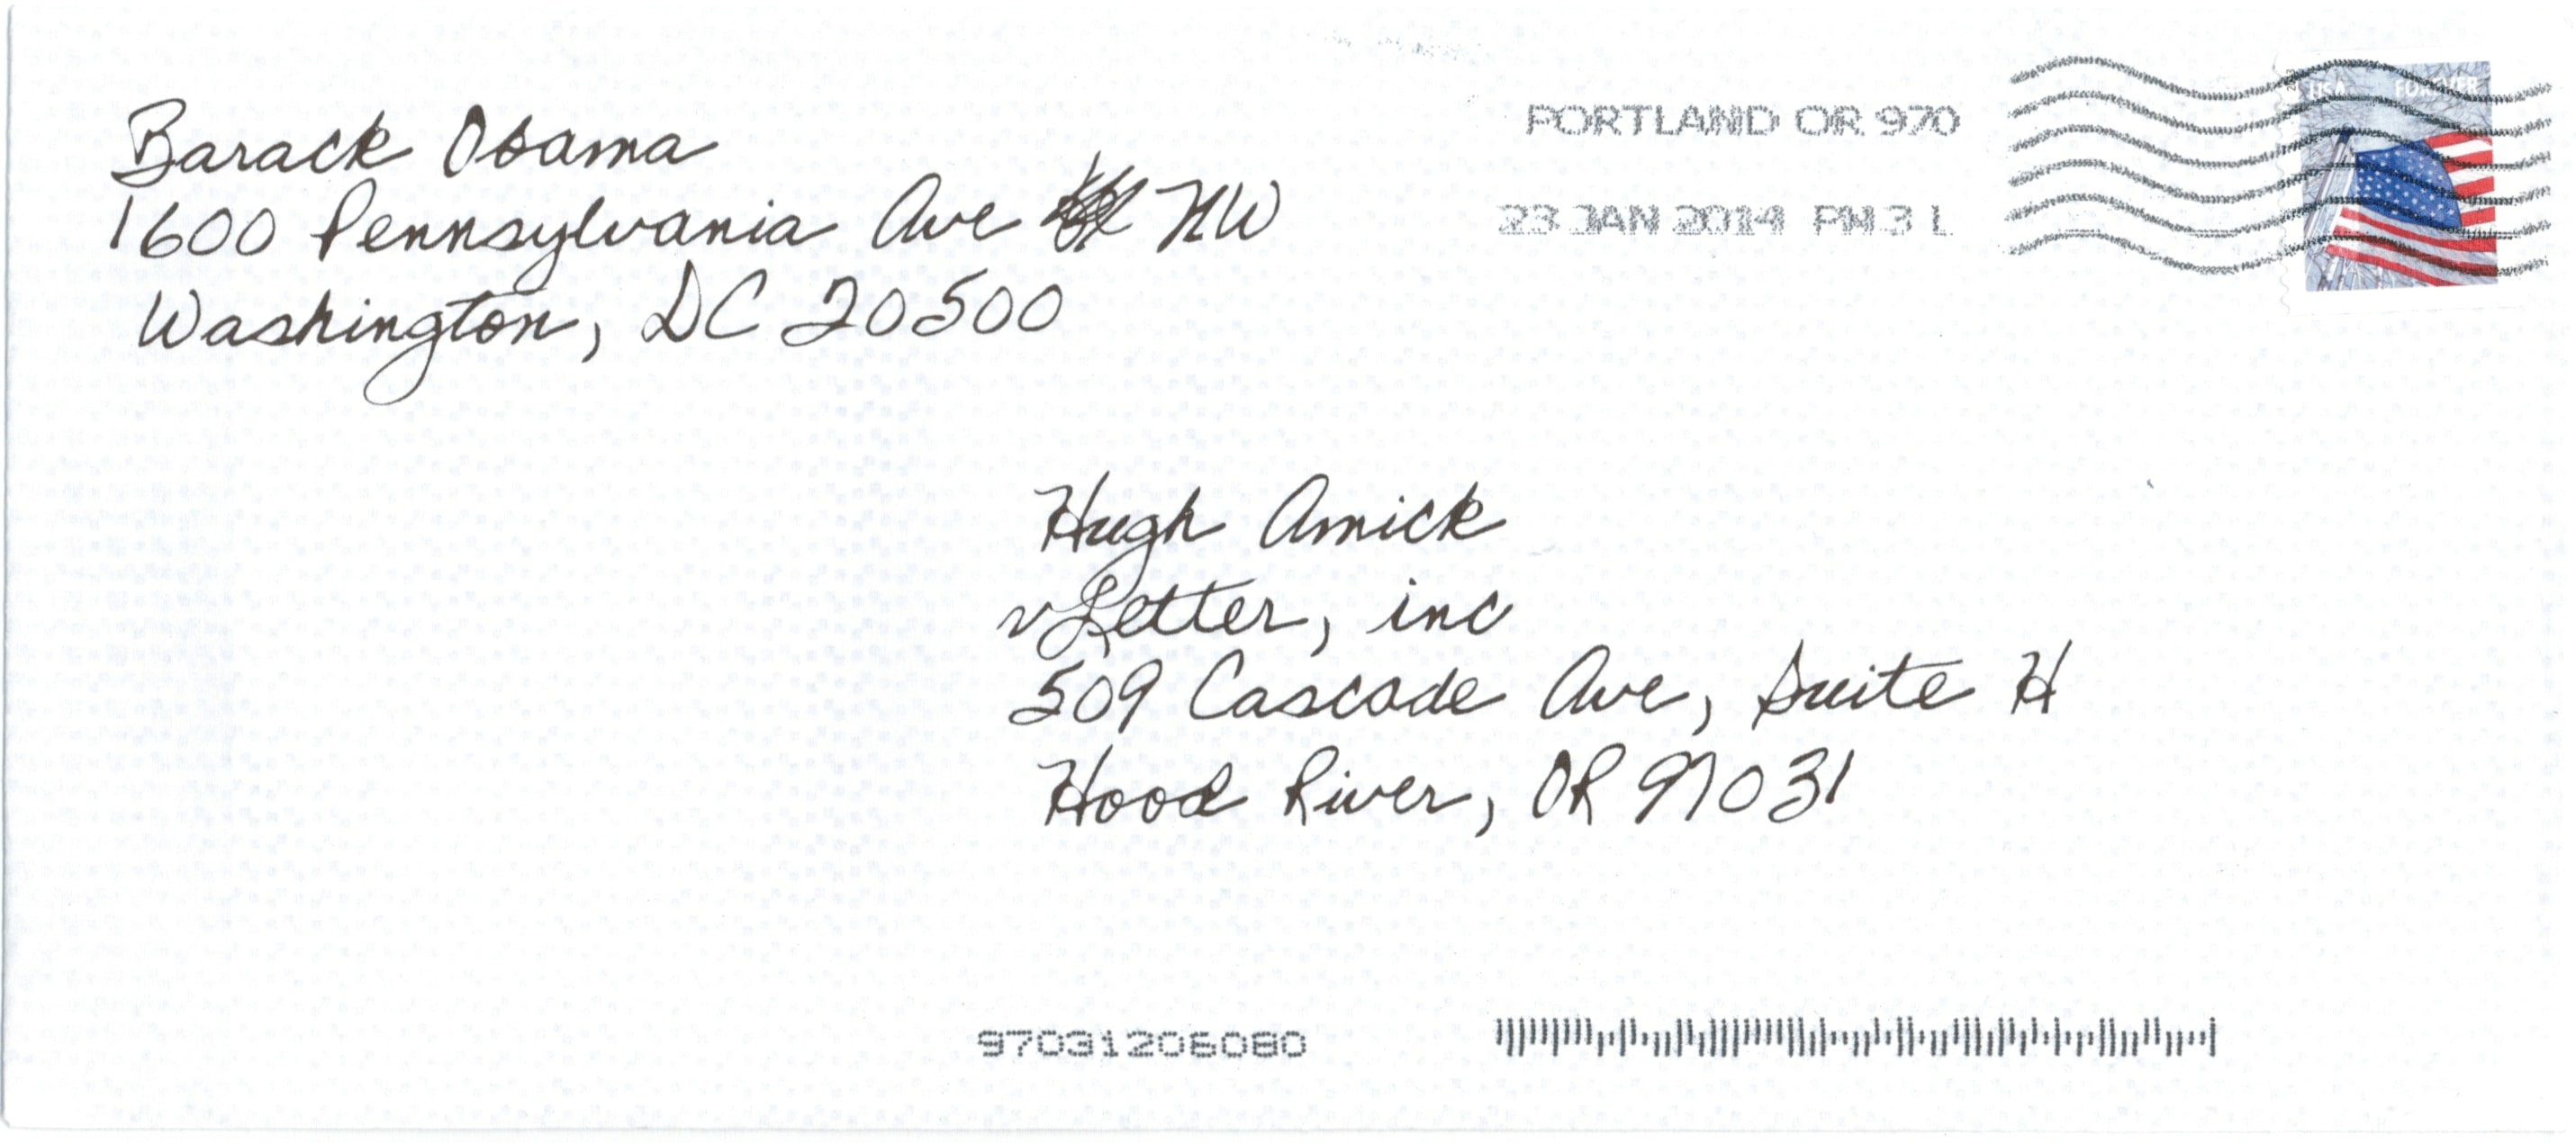 Barack Obama
1600 Pennsylvania Ave NW
Washington, DC 20500
PORTLAND OR 970
23 JAN 2014 PM 3 L
USA FOREVER
Hugh Amick
vLetter, inc
509 Cascade Ave, Suite H
Hood River, OR 97031
97031206080